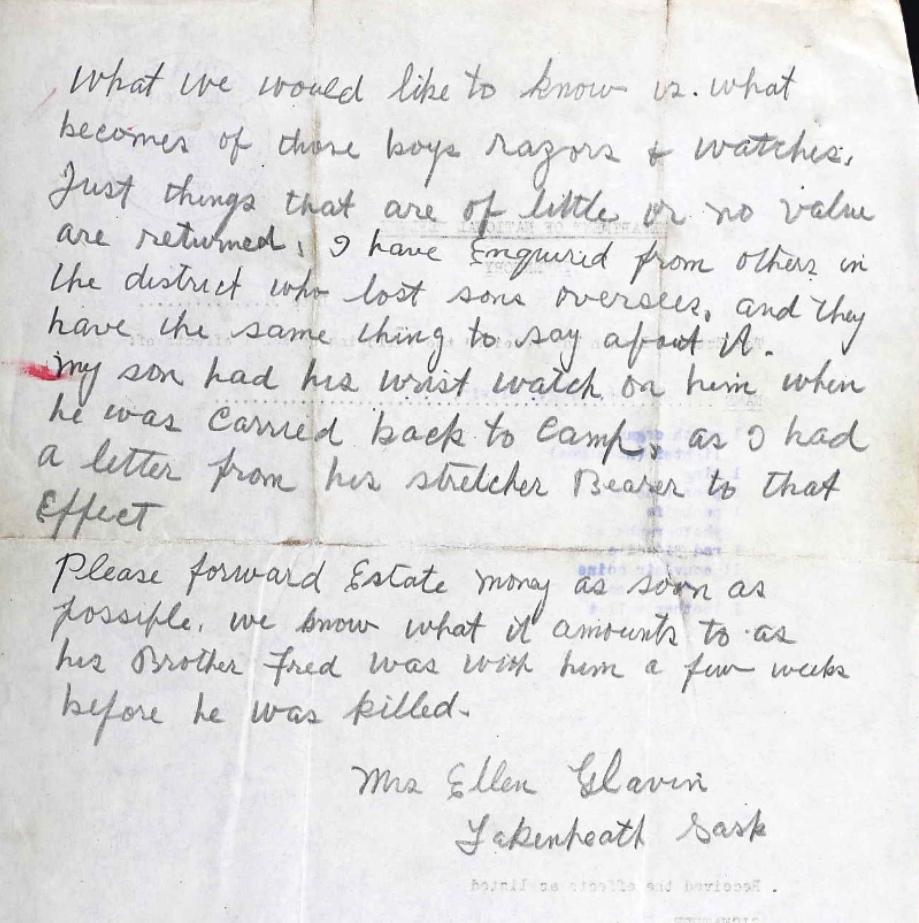 What we would like to know is. what
becomes of those boys razors & watches.
Just things that are of little or no value
are returned, I have Enquired from others in
the district who lost sons overseas, and they
have the same thing to say about it.
my son had his wrist watch on him when
he was Carried back to Camp, as I had
a letter from his stretcher Bearer to that
Effect
Please forward Estate money as soon as
possible, we know what it amounts to as
his Brother Fred was with him a few weeks
before he was killed.
Mrs Ellen Glavin
Lakenheath Sask
Received the effects as listed